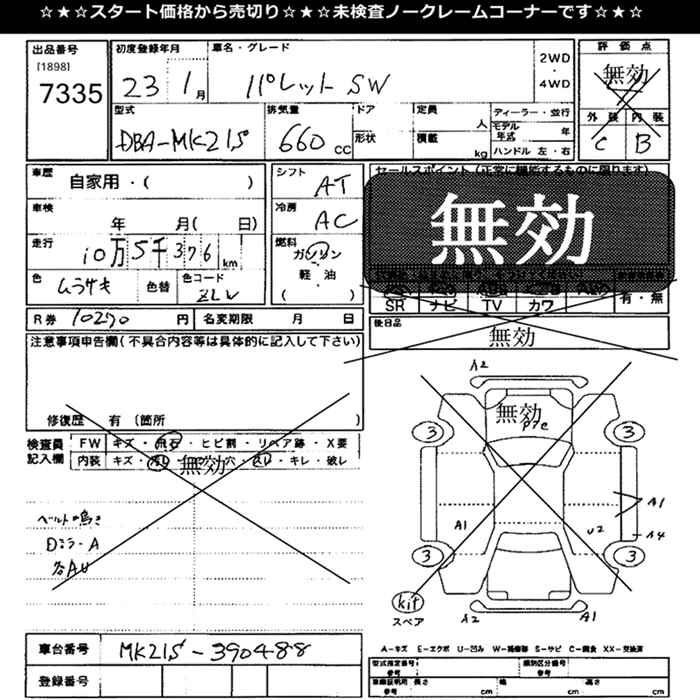 ☆★☆★スタート価格から売切り☆★☆★未検査ノークレームコーナーです☆★☆
出品番号
[1898]
7335
初度登録年月
23 1月
車名・グレード
パレット SW
2WD
・
4WD
評価点
無効
外装 内装
C B
型式
DBA-MK21S
排気量
660 CC
ドア
形状
定員 人
積載 kg
ディーラー・並行
モデル年式 年
ハンドル 左・右
車歴
自家用・( )
車検
年 月( 日)
走行
10万5千376 km
色
ムラサキ
色替
色コード
ZLV
シフト
AT
冷房
AC
燃料
ガソリン
軽・油
( )
セールスポイント(正常に機能するものに限ります)
無効
SR ナビ TV カワ
有・無
R券 10290 円
名変期限 月 日
後日品
無効
注意事項申告欄(不具合内容等は具体的に記入して下さい)
修復歴 有 (箇所 )
検査員記入欄
FW キズ・飛石・ヒビ割・リペア跡・X要
内装 キズ・ 無効 穴・ ・キレ・破レ
ベルト鳴き
Dミラ-A
各AU
A2
無効
3 3
A1
U2
A1
A4
3 3
kit
スペア
A2
A1
A-キズ E-エクボ U-凹み W-補修跡 S-サビ C-腐食 XX-交換済
車台番号
MK21S-390488
登録番号
型式指定番号
参考
類別区分番号
参考
車庫証明用
参考
長さ cm
幅 cm
高さ cm